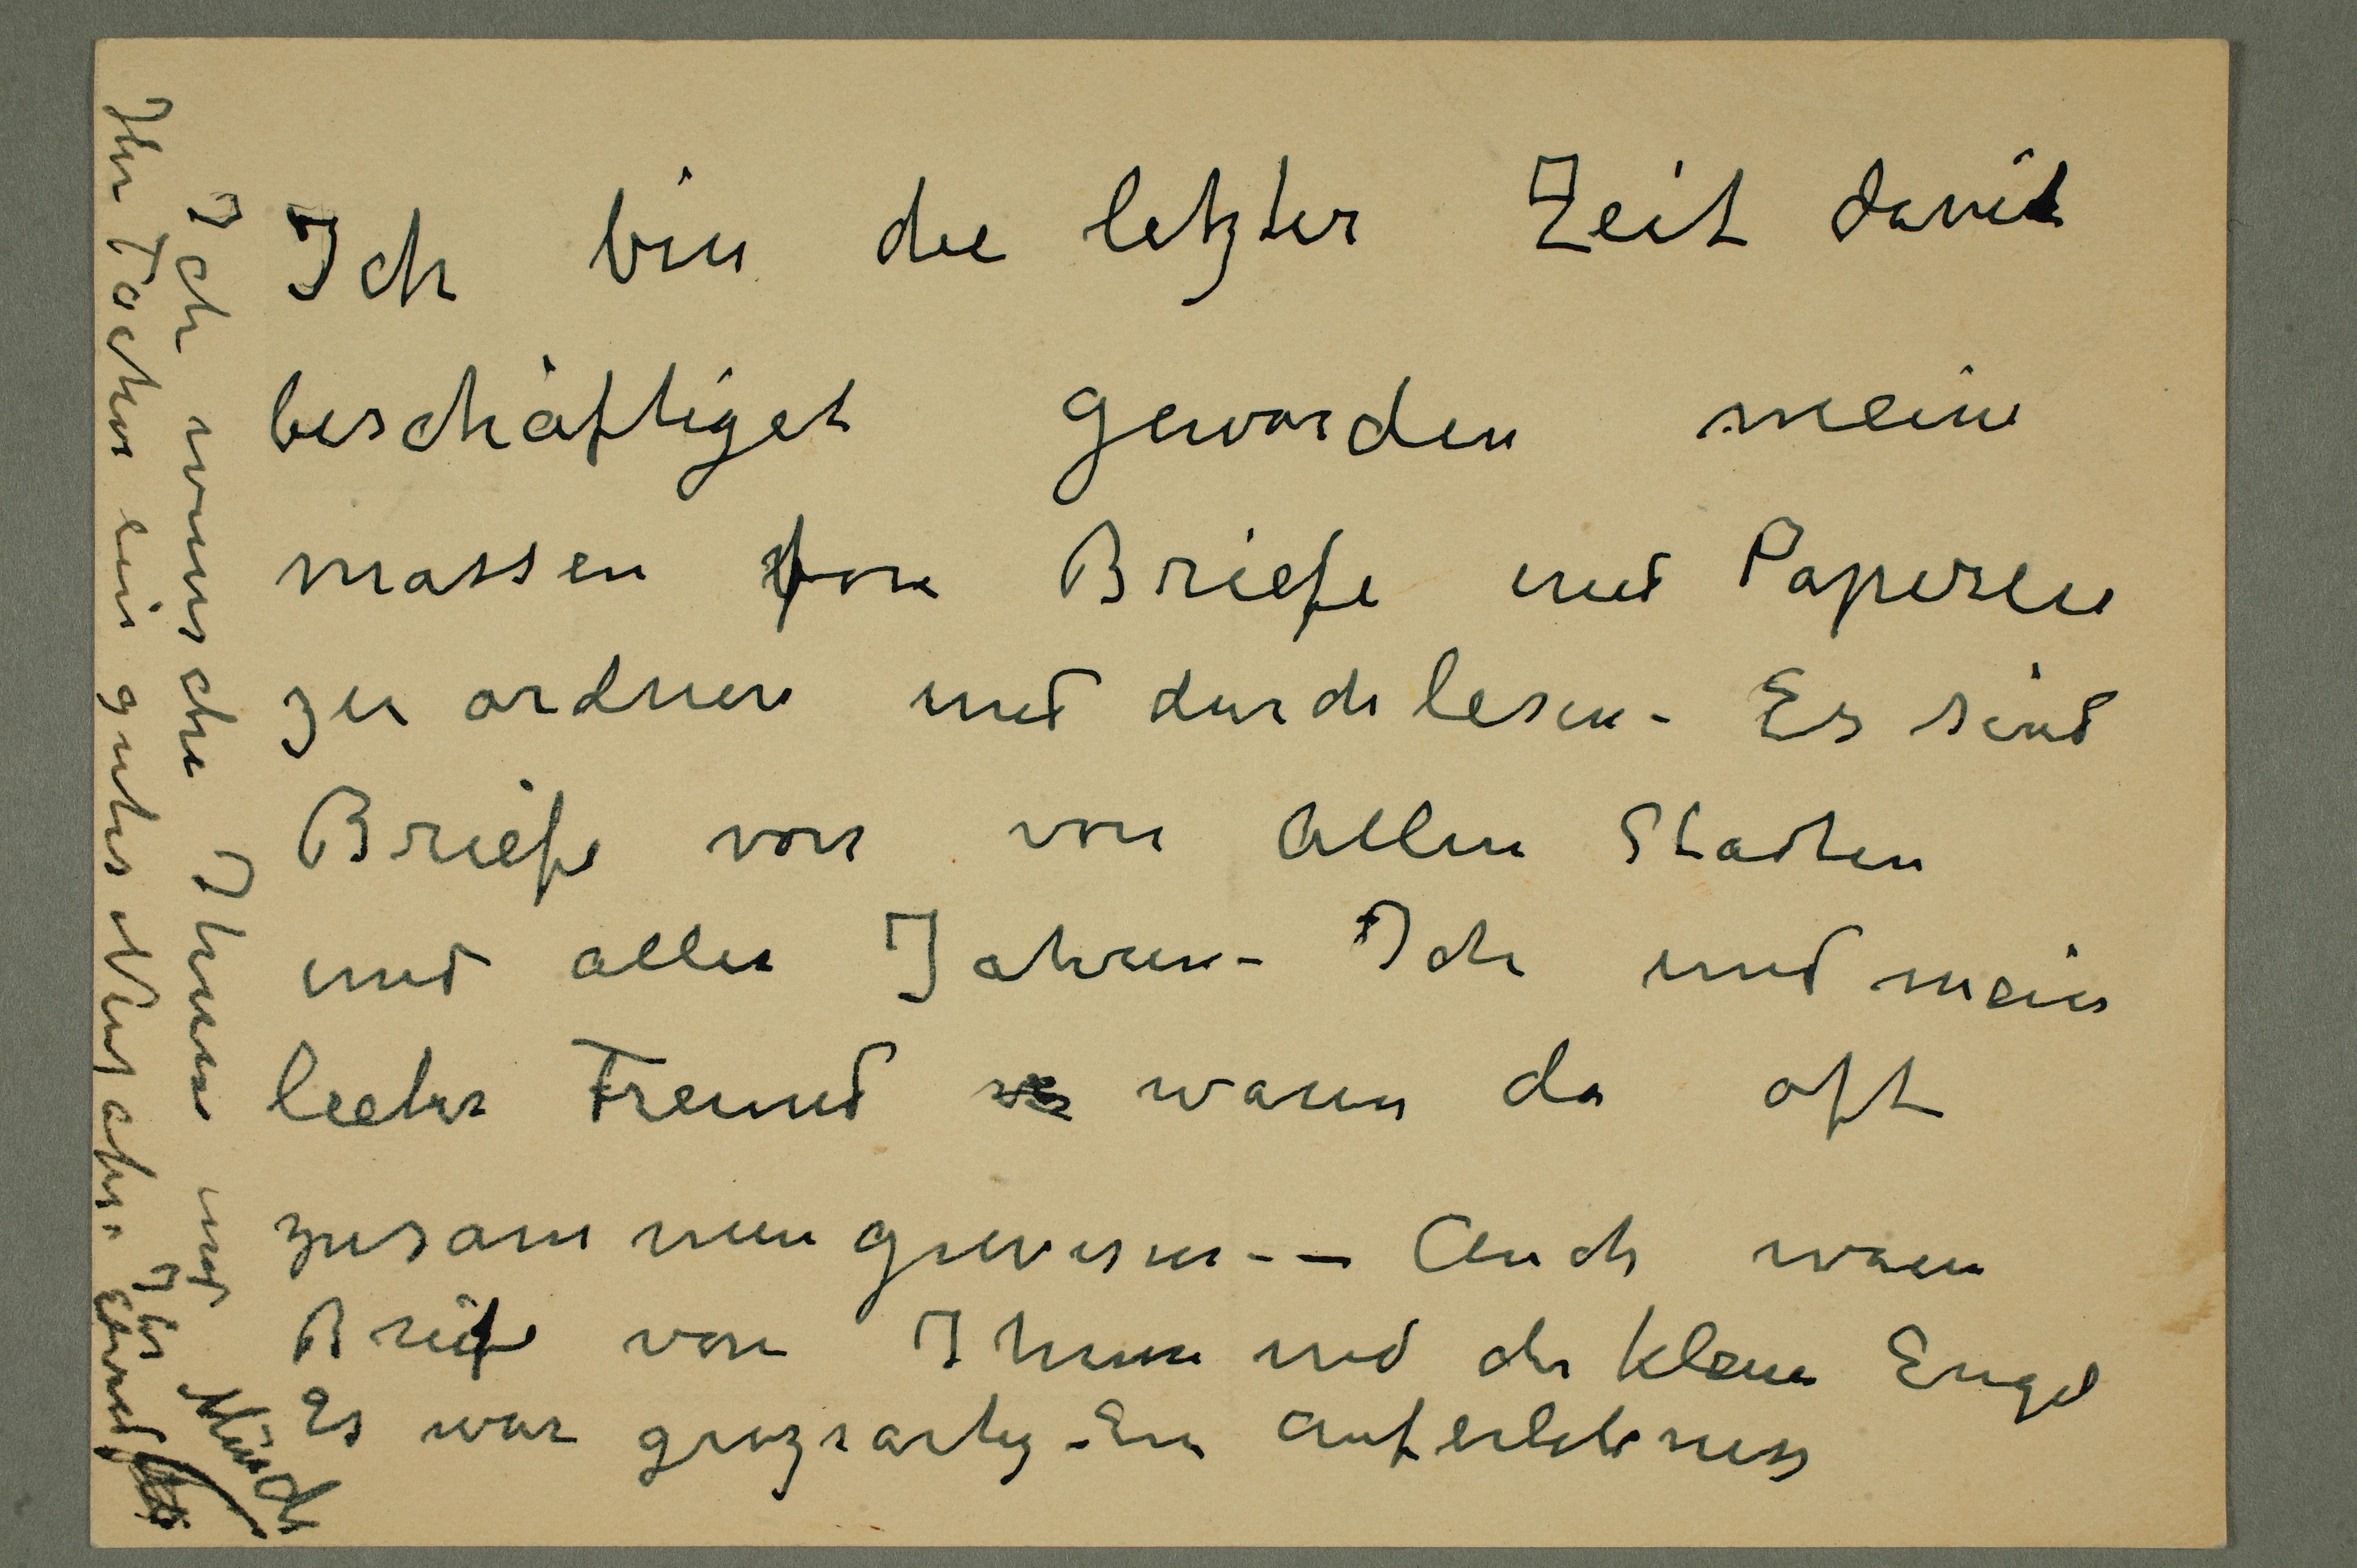 Ich bin die letzter Zeit damit
beschäftiget geworden meine
massen von Briefe und Papieren
zu ordnen und durchlesen – Es sind
Briefe von von allen Stadten
und allen Jahren – Ich und mein
lieber Freund waren da oft
zusammen gewesen – – Auch waren
Briefe von Ihnen und der kleine Engel
Es war grozsartig – Ein auferlebness
Ich wünsche Ihnen und
Ihr Tochter ein gutes Neujahr.
Ihr
Edvard Munch